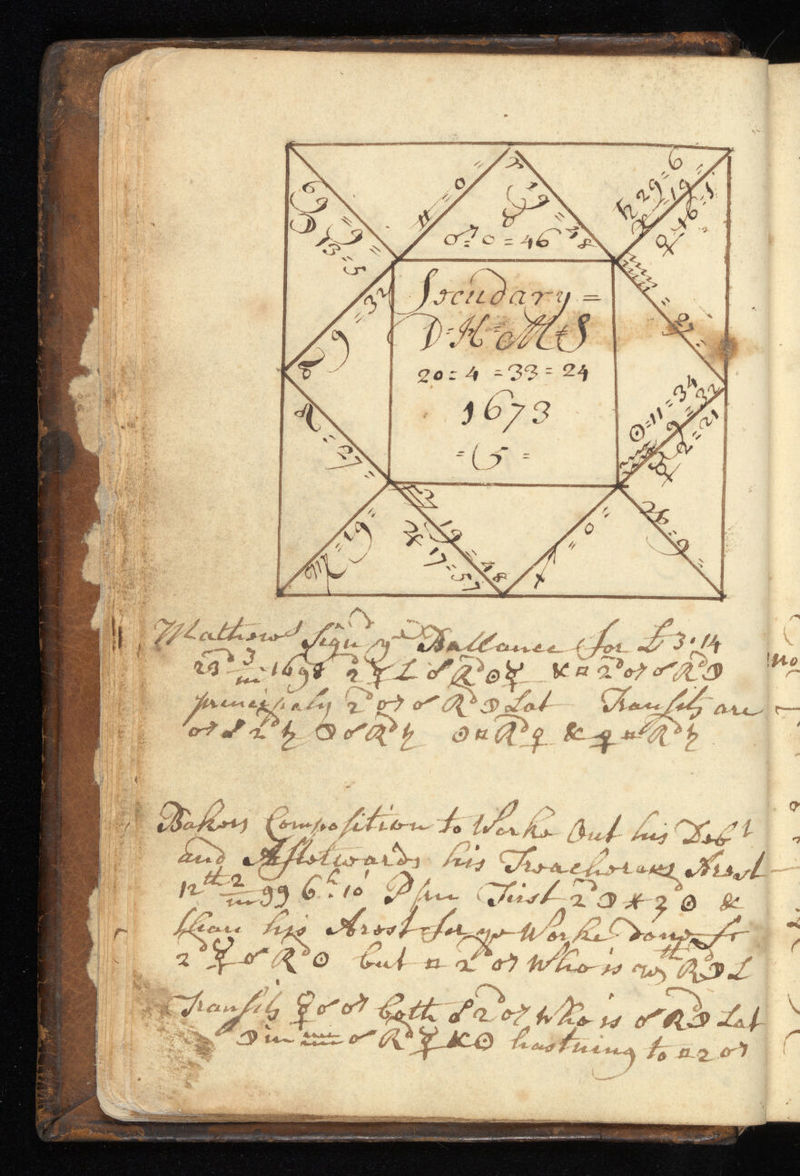 ♋ 9 = 9 =
☽ 13 = 5
♊ = 0 =
♈ 19 = 48
☿
♂ = 0 = 46
♄ 29 = 6
♓ = 19 =
♀ 16 = 1
♒ = 27 =
♌ 9 = 32
Secudary =
D = H = M = S
20 = 4 = 33 = 24
1673
☉ = 11 = 34
♒ 9 = 32
☿ 2 = 21
♌ = 27 =
♍ = 19 =
♎ 19 = 48
♃ 17 = 57
♐ = 0 =
♑ = 9 =
Mathews Signd ye Ballance for £ 3 : 14
23d 3/m 1698 2 ☿ L ☍ Rd ☉ ☿ & □ 2d ♂ ☌ Rd ☽
principaly 2d ♂ ☌ Rd ☽ Lat Transits are
♂ ☍ 2d ♄ ☽ ☌ Rd ♄ ☉ □ Rd ♀ & ♀ □ Rd ♄
Bakers Composition to Worke Out his Debt
and Afterwards his Treacherous Arest
12th 2/m 99 6h 10' P m First 2d ☽ ⚹ 2d ☉ &
then his Arest for ye Worke done
2d ☿ ☌ Rd ☉ but □ 2d ♂ Who is wth Rd ☽ L
Transits ☿ ☌ ♂ both ☍ 2d ♂ Who is ☌ Rd ☽ Lat
☽ in ♒ ☌ Rd ☿ & ☉ hastning to □ 2 ♂